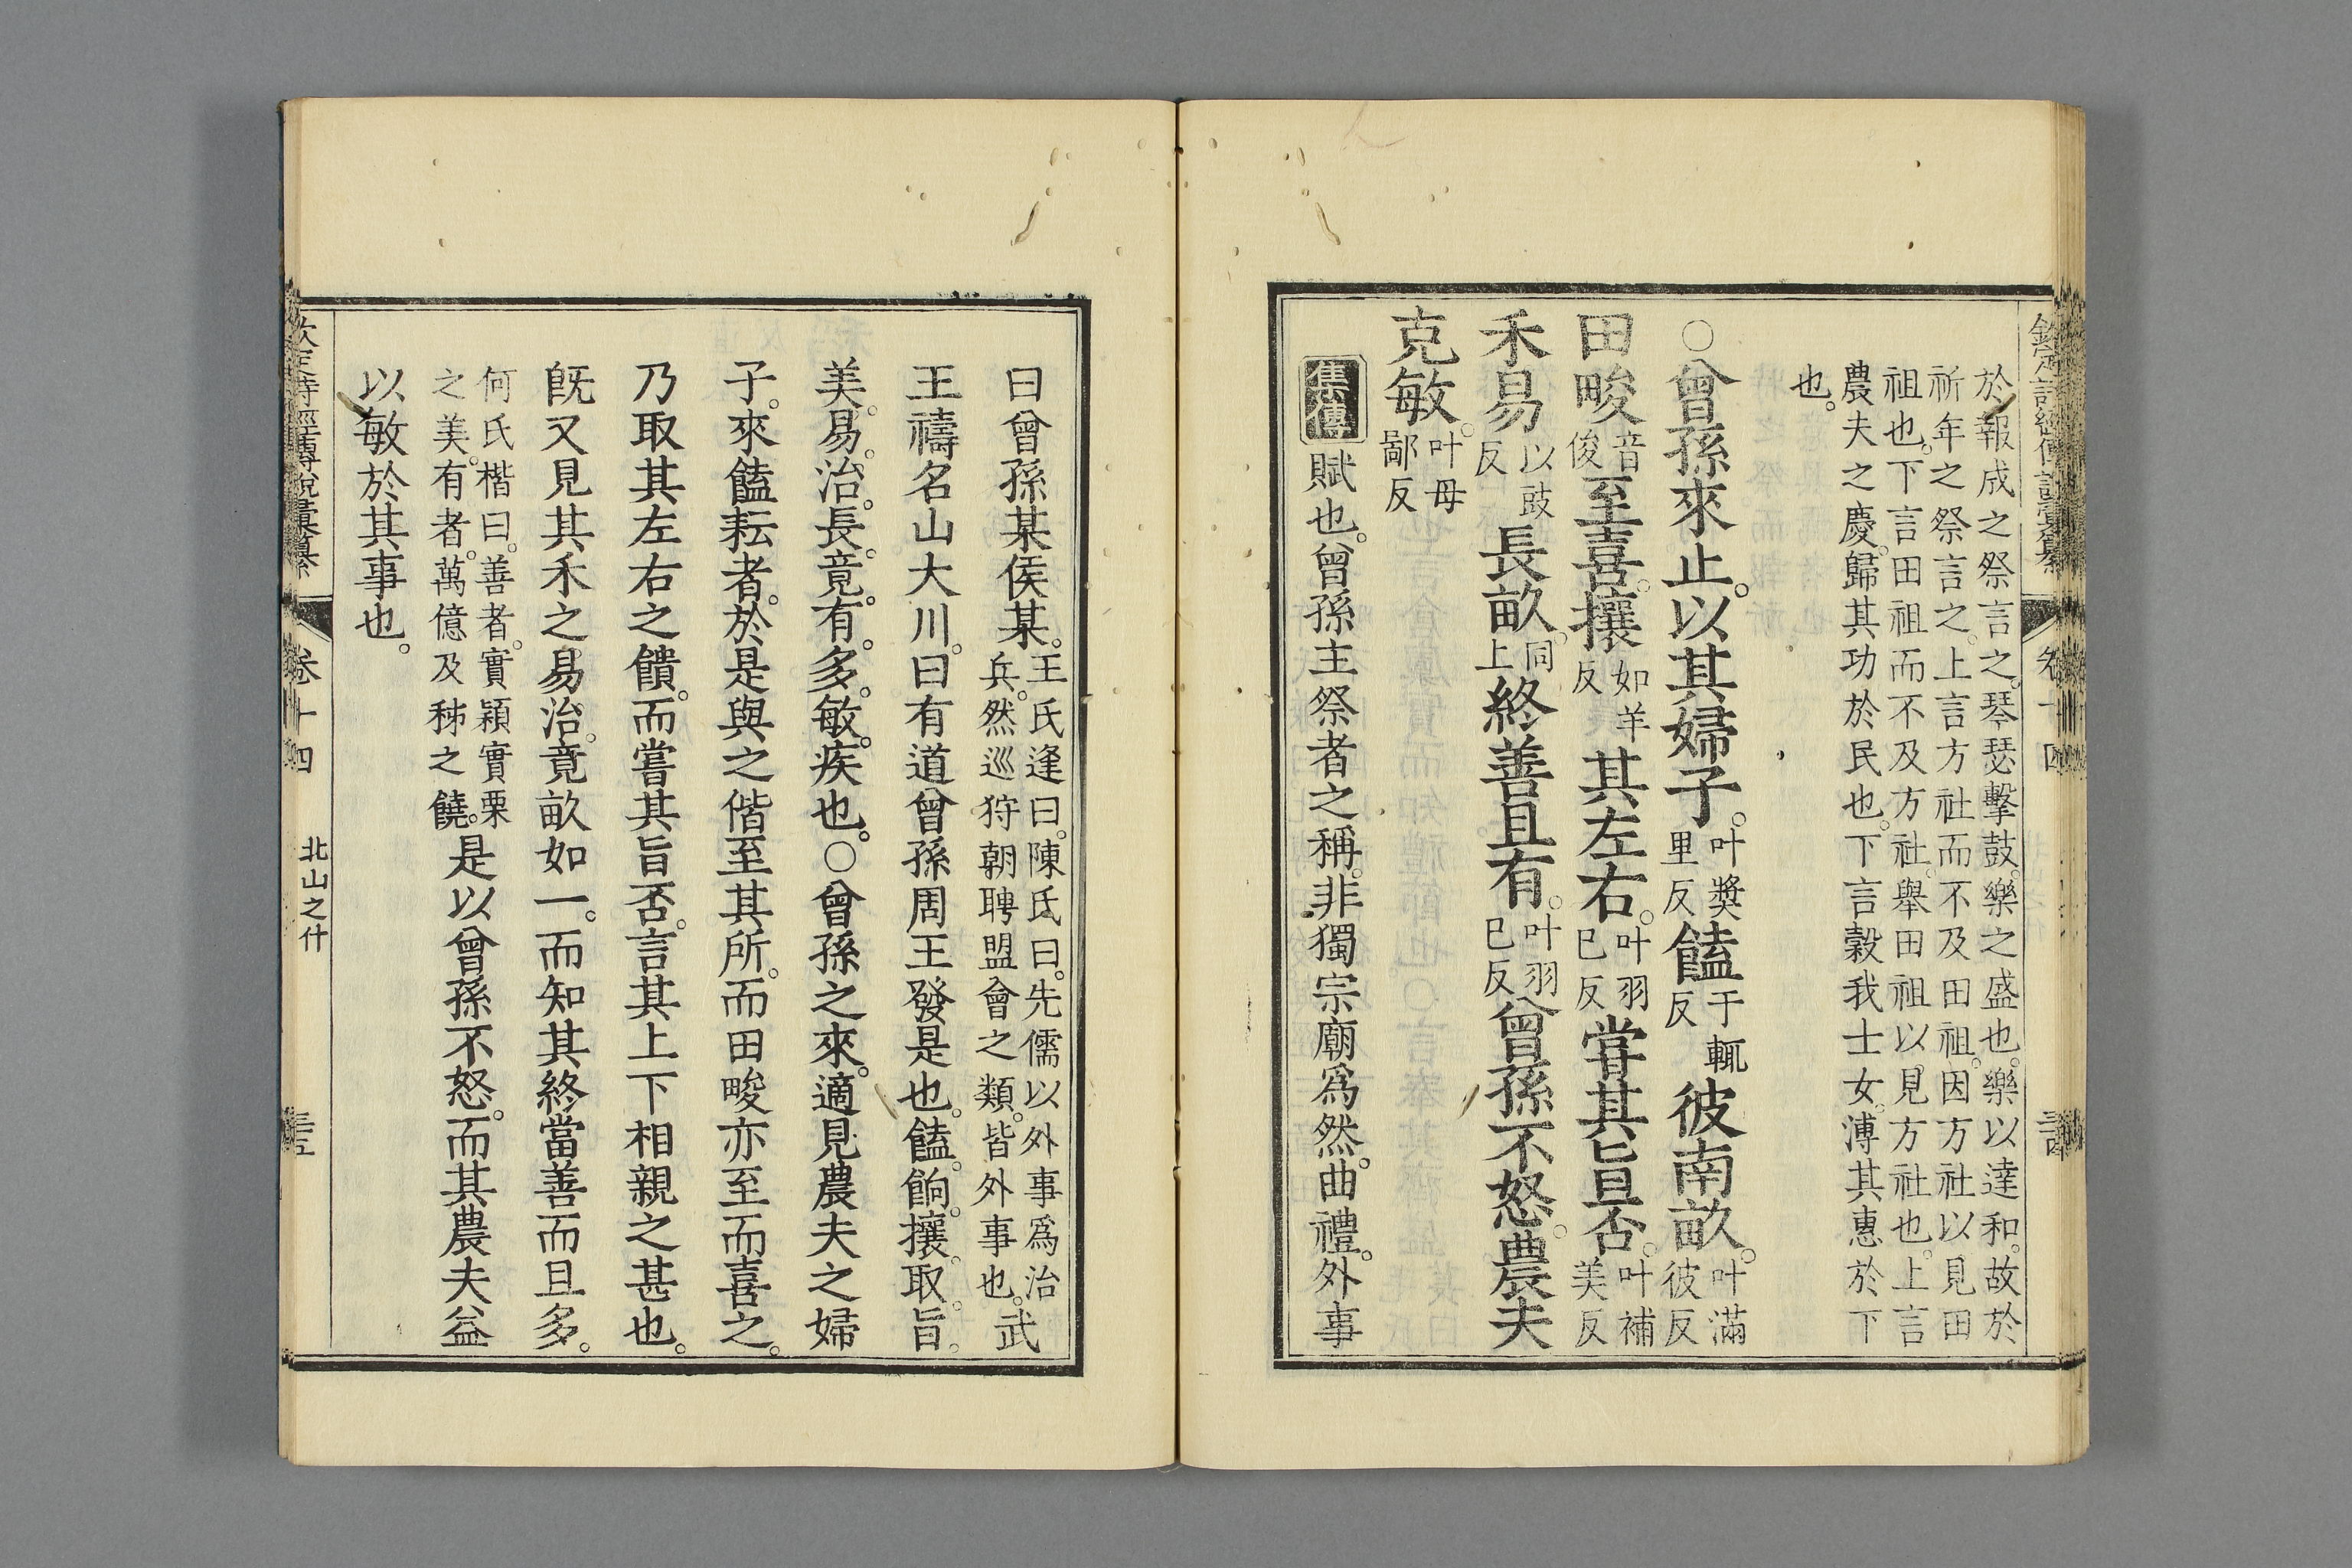 於報成之祭言之。琴瑟擊鼓。樂之盛也。樂以達和。故於
祈年之祭言之。上言方社而不及田祖。因方社以見田
祖也。下言田祖而不及方社。舉田祖以見方社也。上言
農夫之慶。歸其功於民也。下言穀我士女。溥其惠於下
也。
○曾孫來止。以其婦子。叶奬里反饁于輒反彼南畝。叶滿彼反
田畯音俊至喜。攘如羊反其左右。叶羽已反嘗其旨否。叶補美反
禾易以豉反長畝。同上終善且有。叶羽已反曾孫不怒。農夫
克敏。叶母鄙反
集傳賦也。曾孫主祭者之稱。非獨宗廟爲然。曲禮。外事
曰曾孫某侯某。王氏逢曰。陳氏曰。先儒以外事爲治兵。然巡狩朝聘盟會之類。皆外事也。武
王禱名山大川。曰有道曾孫周王發是也。饁。餉。攘。取。旨。
美。易。治。長。竟。有。多。敏。疾也。○曾孫之來。適見農夫之婦
子。來饁耘者。於是與之偕至其所。而田畯亦至而喜之。
乃取其左右之饋。而嘗其旨否。言其上下相親之甚也。
旣又見其禾之易治。竟畝如一。而知其終當善而且多。
何氏楷曰。善者。實穎實栗之美。有者。萬億及秭之饒。是以曾孫不怒。而其農夫益
以敏於其事也。
欽定詩經傳說彙纂 卷十四 北山之什